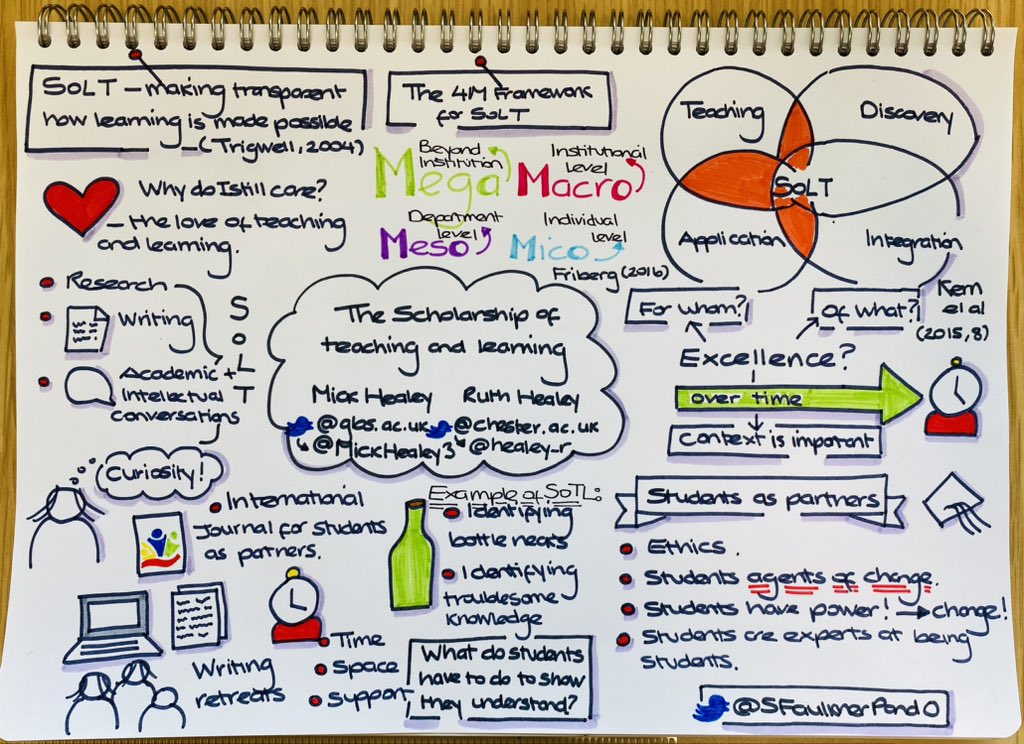 SoLT - making transparent
how learning is made possible
-(Trigwell, 2004)
Why do I still care?
- the love of teaching
and learning.
Research
Writing
Academic +
Intellectual
conversations
SoLT
Curiosity!
International
Journal for students
as partners.
Writing
retreats
Time
Space
Support
The 4M Framework
for SoLT
Beyond
Institution
Mega
Institutional
Level
Macro
Department
level
Meso
Individual
level
Mico
Friberg (2016)
The Scholarship of
teaching and learning
Mick Healey Ruth Healey
@glos.ac.uk @chester.ac.uk
@MickHealey3 @healey_r
Example of SoTL:
Identifying
bottle necks
Identifying
troublesome
knowledge
What do students
have to do to show
they understand?
Teaching
Discovery
SoLT
Application
Integration
For whom?
Of what?
Kern
et al
(2015,8)
Excellence?
over time
Context is important
Students as partners
Ethics.
Students agents of change.
Students have power! → change!
Students are experts at being
students.
@SFaulknerPandO